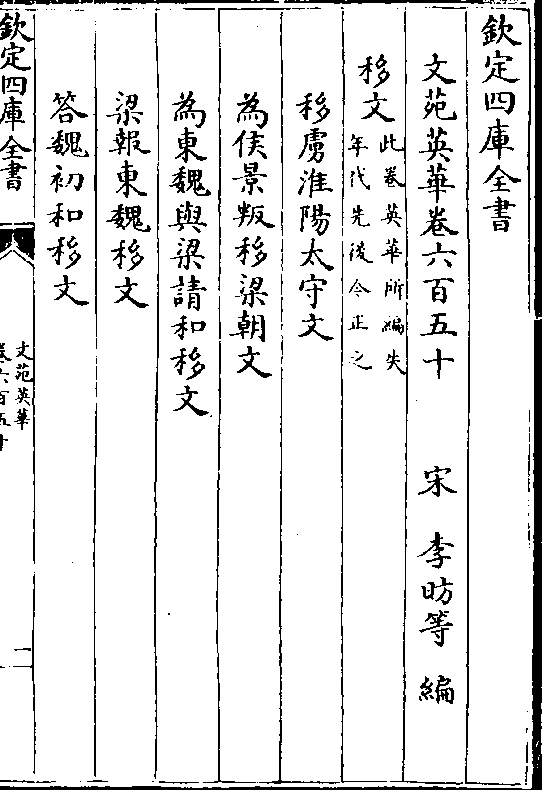 欽定四庫全書
文苑英華卷六百五十 宋 李昉等 編
移文 此卷英華所編失年代先後今正之
移虜淮陽太守文
為侯景叛移梁朝文
為東魏與梁請和移文
梁報東魏移文
答魏初和移文
欽定四庫全書
文苑英華
卷六百五十
一